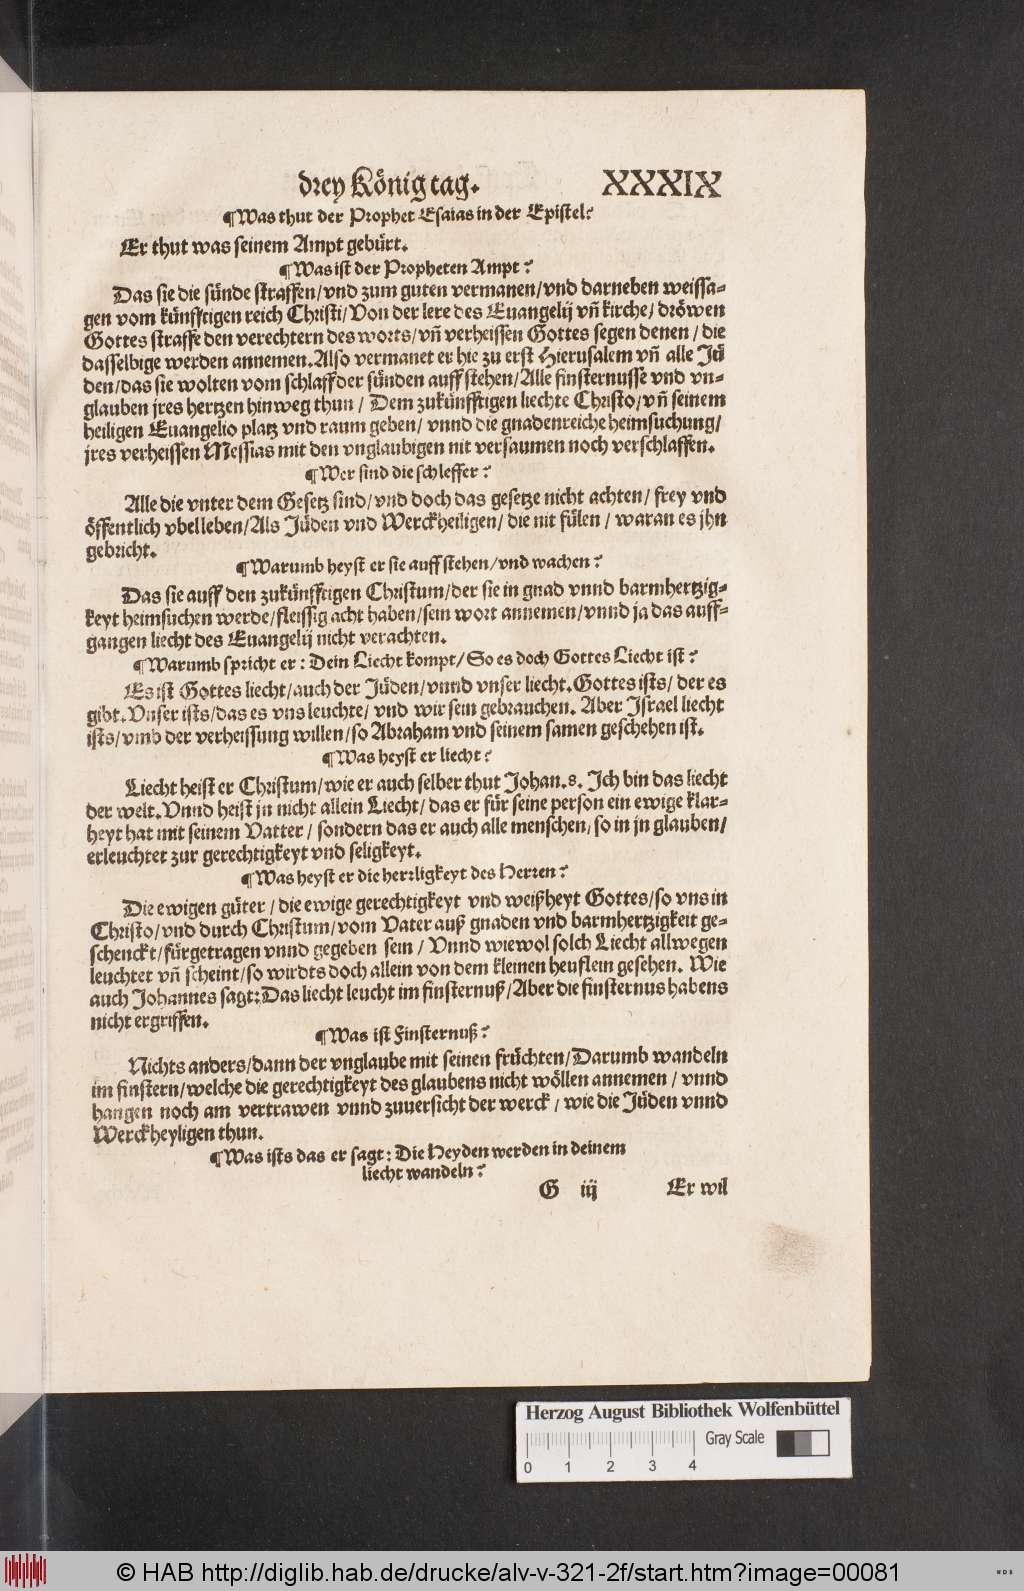 drey König tag. XXXIX
¶Was thut der Prophet Esaias in der Epistel?
Er thut was seinem Ampt gebürt.
¶Was ist der Propheten Ampt?
Das sie die sünde straffen/vnd zum guten vermanen/vnd darneben weissa-
gen vom künfftigen reich Christi/Von der lere des Euangelij vñ kirche/dröwen
Gottes straffe den verechtern des worts/vñ verheissen Gottes segen denen/die
dasselbige werden annemen. Also vermanet er hie zu erst Hierusalem vñ alle Jü
den/das sie wolten vom schlaff der sünden auff stehen/Alle finsternusse vnd vn-
glauben jres hertzen hinweg thun/Dem zukünfftigen liechte Christo/vñ seinem
heiligen Euangelio platz vnd raum geben/vnnd die gnadenreiche heimsuchung/
jres verheissen Messias mit den vnglaubigen nit versaumen noch verschlaffen.
¶Wer sind die schleffer?
Alle die vnter dem Gesetz sind/vnd doch das gesetze nicht achten/frey vnd
öffentlich vbelleben/Als Jüden vnd Werckheiligen/die nit fülen/waran es jhn
gebricht.
¶Warumb heyst er sie auff stehen/vnd wachen?
Das sie auff den zukünfftigen Christum/der sie in gnad vnnd barmhertzig-
keyt heimsuchen werde/fleissig acht haben/sein wort annemen/vnnd ja das auff-
gangen liecht des Euangelij nicht verachten.
¶Warumb spricht er: Dein Liecht kompt/So es doch Gottes Liecht ist?
Es ist Gottes liecht/auch der Jüden/vnnd vnser liecht. Gottes ists/der es
gibt. Vnser ists/das es vns leuchte/vnd wir sein gebrauchen. Aber Israel liecht
ists/vmb der verheissung willen/so Abraham vnd seinem samen geschehen ist.
¶Was heyst er liecht?
Liecht heist er Christum/wie er auch selber thut Johan.8. Ich bin das liecht
der welt. Vnnd heist jn nicht allein Liecht/das er für seine person ein ewige klar-
heyt hat mit seinem Vatter/sondern das er auch alle menschen/so in jn glauben/
erleuchtet zur gerechtigkeyt vnd seligkeyt.
¶Was heyst er die herrligkeyt des Herren?
Die ewigen güter/die ewige gerechtigkeyt vnd weißheyt Gottes/so vns in
Christo/vnd durch Christum/vom Vater auß gnaden vnd barmhertzigkeit ge-
schenckt/fürgetragen vnnd gegeben sein/Vnnd wiewol solch Liecht allwegen
leuchtet vñ scheint/so wirdts doch allein von dem kleinen heuflein gesehen. Wie
auch Johannes sagt: Das liecht leucht im finsternuß/Aber die finsternus habens
nicht ergriffen.
¶Was ist Finsternuß?
Nichts anders/dann der vnglaube mit seinen früchten/Darumb wandeln
im finstern/welche die gerechtigkeyt des glaubens nicht wöllen annemen/vnnd
hangen noch am vertrawen vnnd zuuersicht der werck/wie die Jüden vnnd
Werckheyligen thun.
¶Was ists das er sagt: Die Heyden werden in deinem
liecht wandeln?
G iij Er wil
Herzog August Bibliothek Wolfenbüttel
Gray Scale
0 1 2 3 4
© HAB http://diglib.hab.de/drucke/alv-v-321-2f/start.htm?image=00081